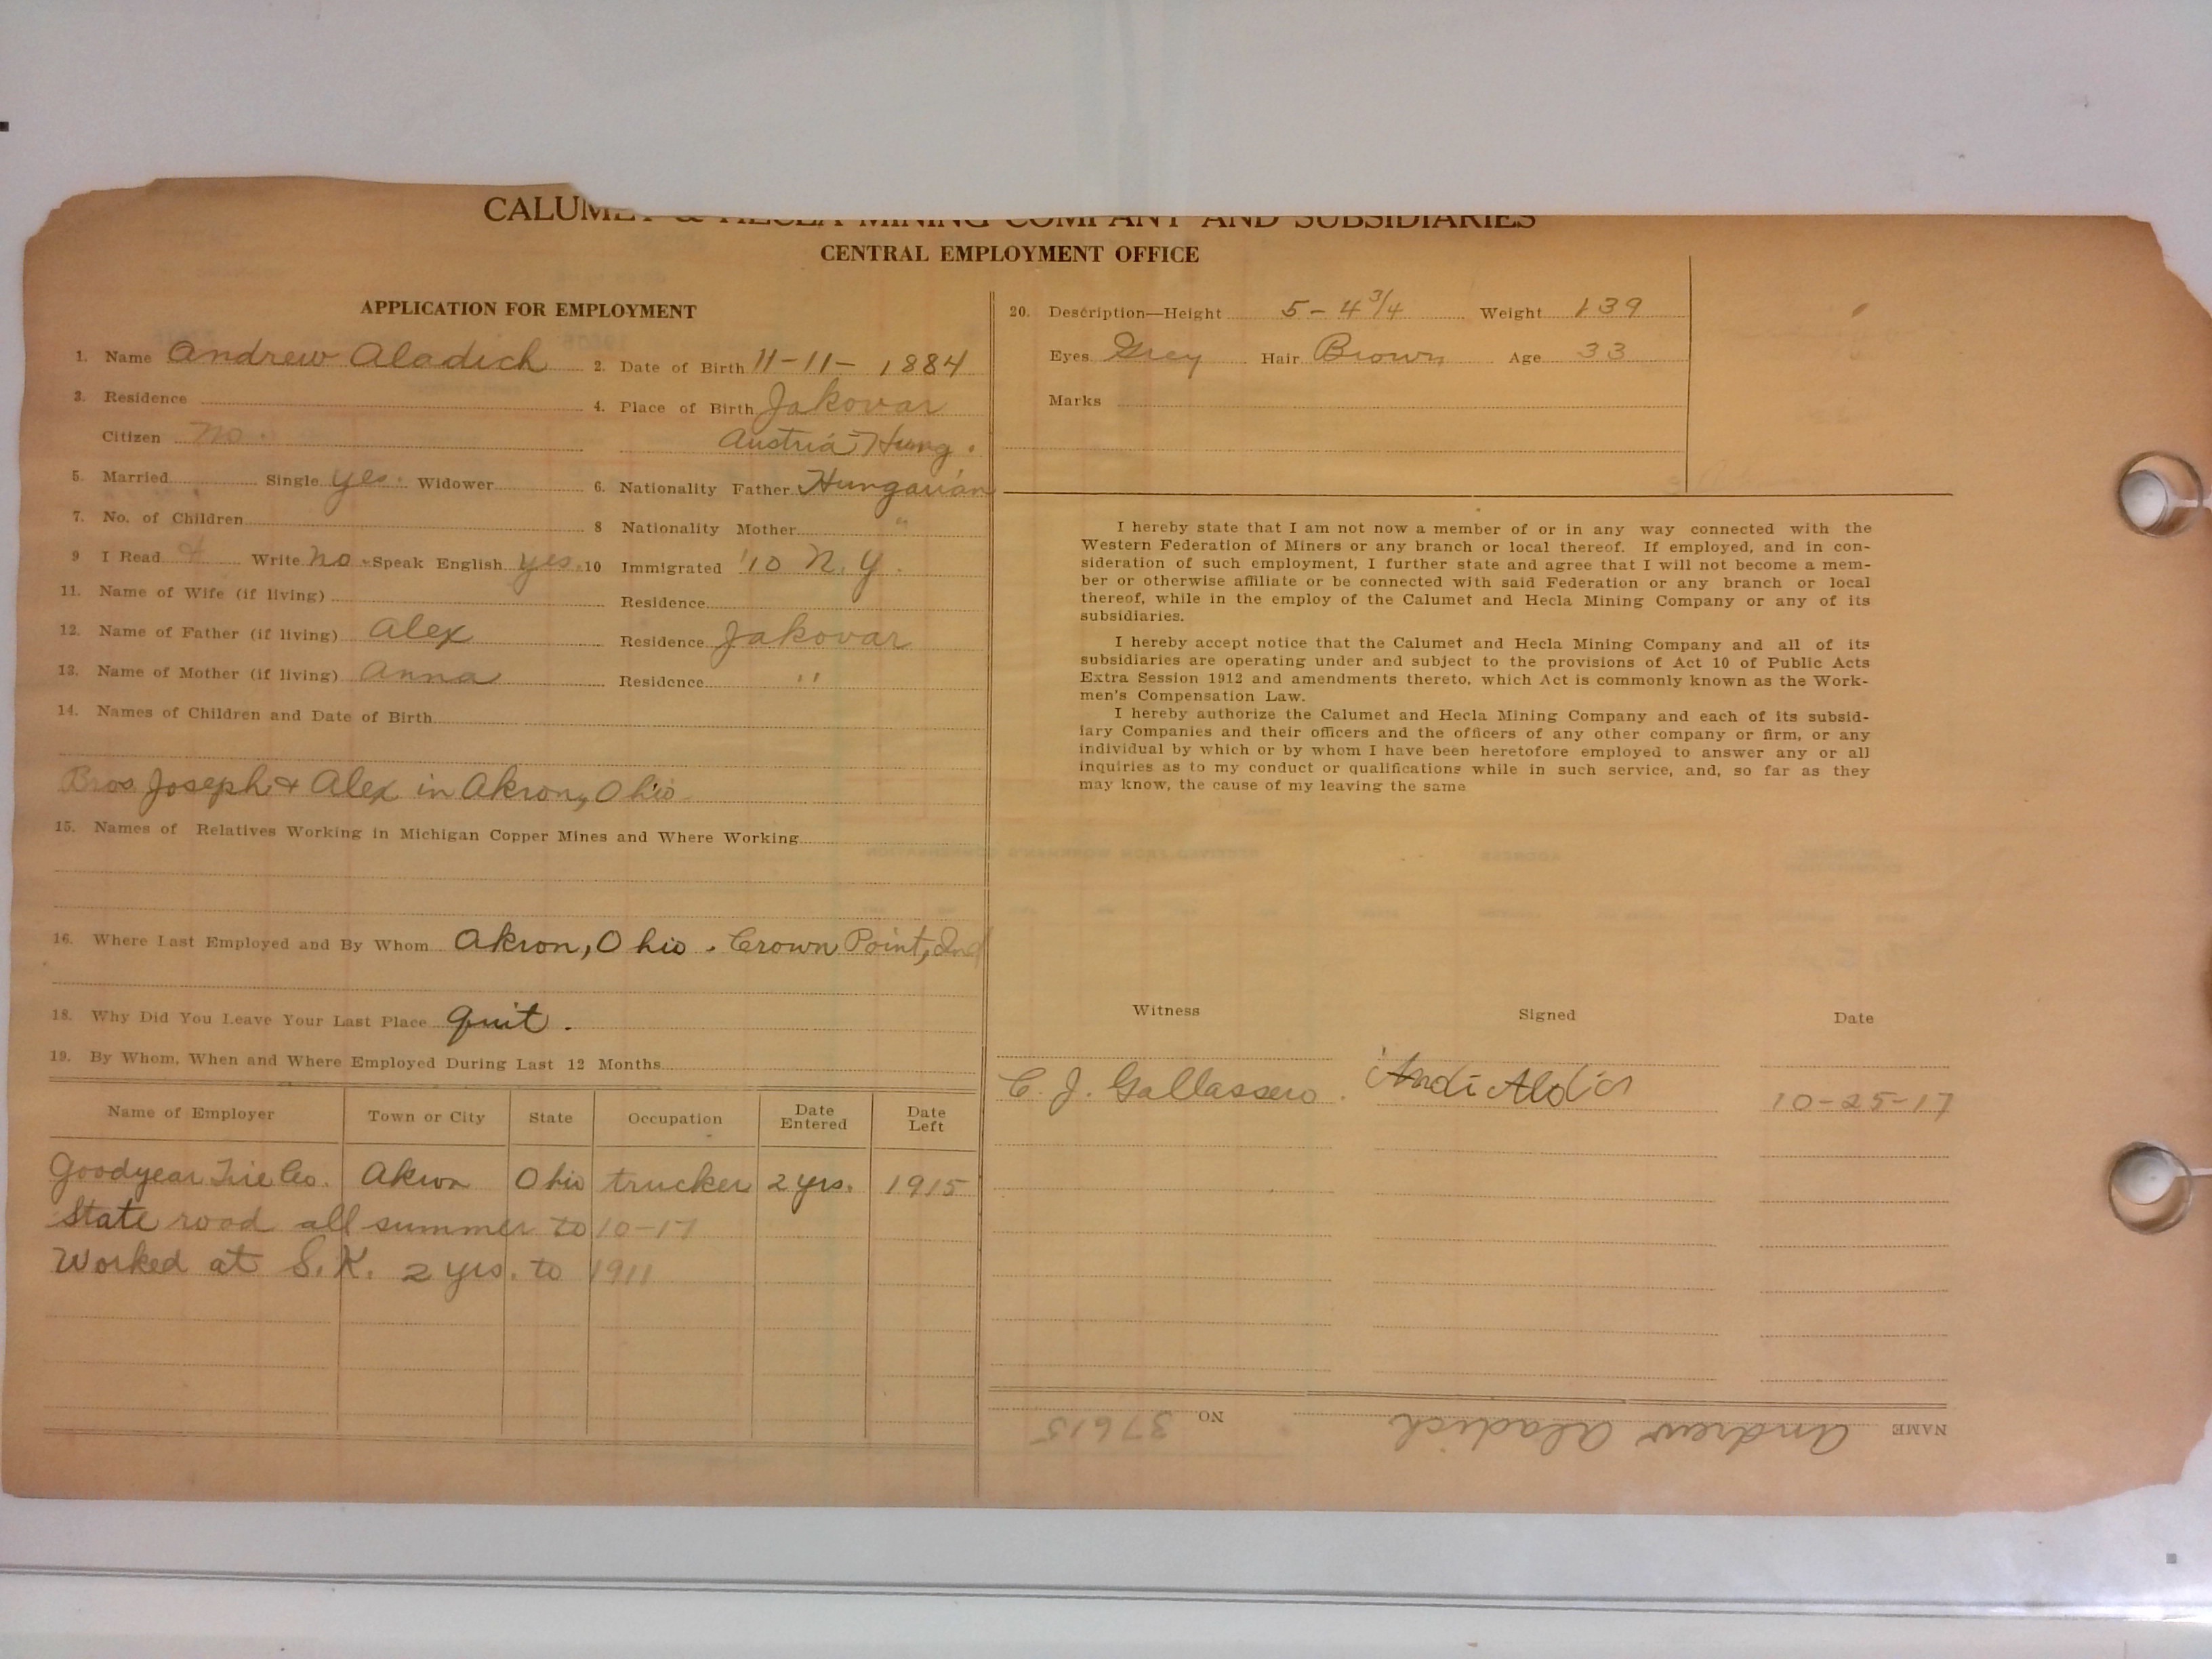 CALUMET & HECLA MINING COMPANY AND SUBSIDIARIES
CENTRAL EMPLOYMENT OFFICE
APPLICATION FOR EMPLOYMENT
1. Name Andrew Aladich 2. Date of Birth 11-11-1884
3. Residence 4. Place of Birth Jakovar
Citizen No. Austria-Hung.
5. Married Single yes. Widower 6. Nationality Father Hungarian
7. No. of Children 8 Nationality Mother "
9 I Read & Write no Speak English yes. 10 Immigrated '10 N.Y.
11. Name of Wife (if living) Residence
12. Name of Father (if living) Alex Residence Jakovar
13. Name of Mother (if living) Anna Residence "
14. Names of Children and Date of Birth
Bros Joseph & Alex in Akron, Ohio
15. Names of Relatives Working in Michigan Copper Mines and Where Working
16. Where Last Employed and By Whom Akron, Ohio. Crown Point, Ind
18. Why Did You Leave Your Last Place quit.
19. By Whom, When and Where Employed During Last 12 Months
Name of Employer Town or City State Occupation Date Entered Date Left
Goodyear Tire Co. Akron Ohio trucker 2 yrs. 1915
State road all summer to 10-17
Worked at S.K. 2 yrs. to 1911
20. Description—Height 5-4 3/4 Weight 139
Eyes Grey Hair Brown Age 33
Marks
I hereby state that I am not now a member of or in any way connected with the
Western Federation of Miners or any branch or local thereof. If employed, and in con-
sideration of such employment, I further state and agree that I will not become a mem-
ber or otherwise affiliate or be connected with said Federation or any branch or local
thereof, while in the employ of the Calumet and Hecla Mining Company or any of its
subsidiaries.
I hereby accept notice that the Calumet and Hecla Mining Company and all of its
subsidiaries are operating under and subject to the provisions of Act 10 of Public Acts
Extra Session 1912 and amendments thereto, which Act is commonly known as the Work-
men's Compensation Law.
I hereby authorize the Calumet and Hecla Mining Company and each of its subsid-
iary Companies and their officers and the officers of any other company or firm, or any
individual by which or by whom I have been heretofore employed to answer any or all
inquiries as to my conduct or qualifications while in such service, and, so far as they
may know, the cause of my leaving the same
Witness Signed Date
C. J. Gallassero. Andi Aldici 10-25-17
NAME Andrew Aladich NO 37615